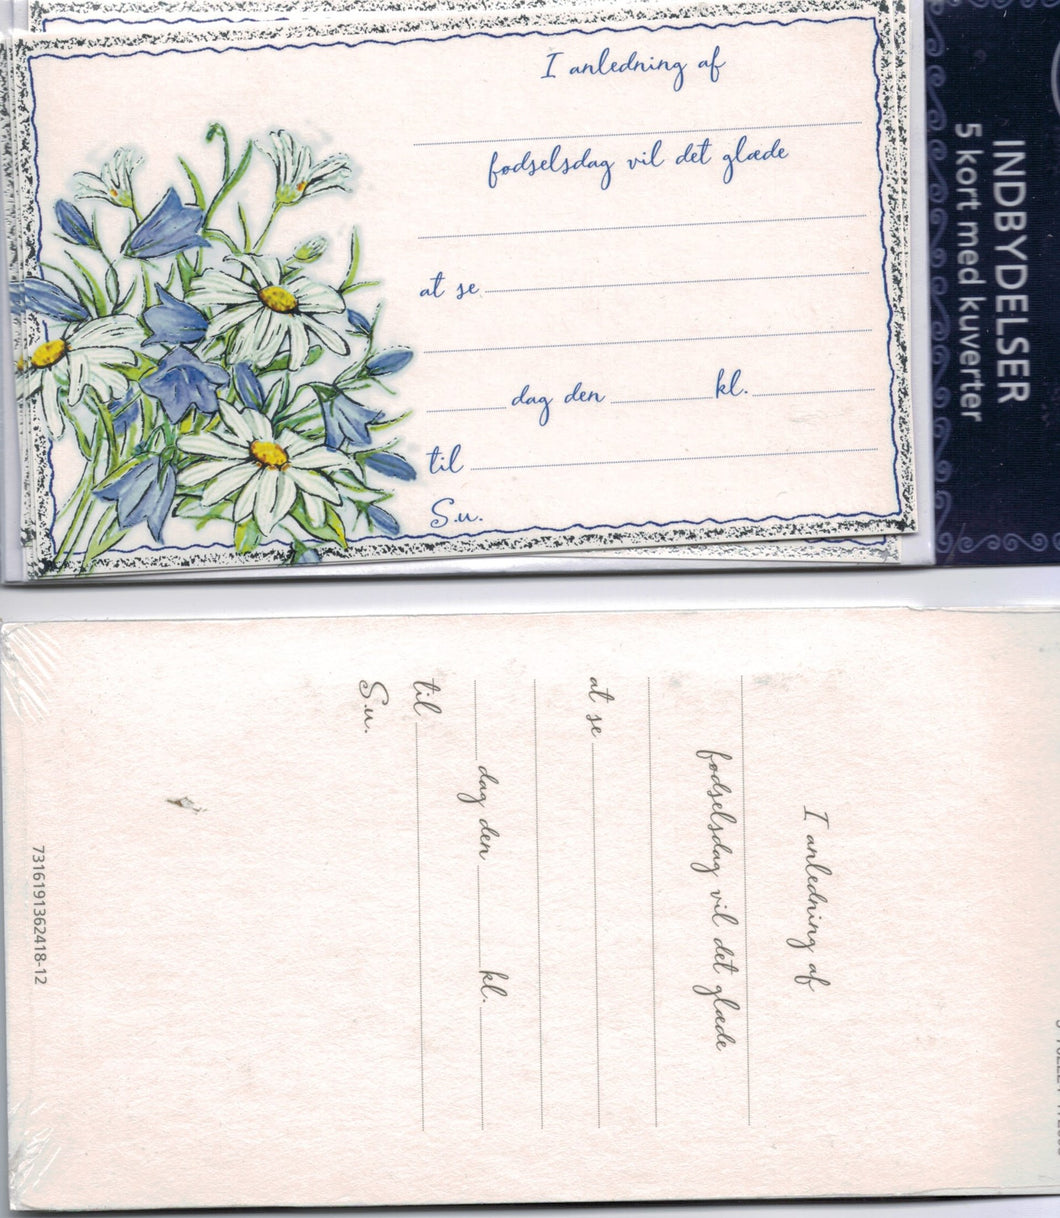 I anledning af
fødselsdag vil det glæde
at se
dag den kl.
til
S.u.
INDBYDELSER
5 kort med kuverter
I anledning af
fødselsdag vil det glæde
at se
dag den kl.
til
S.u.
7316191362418-12